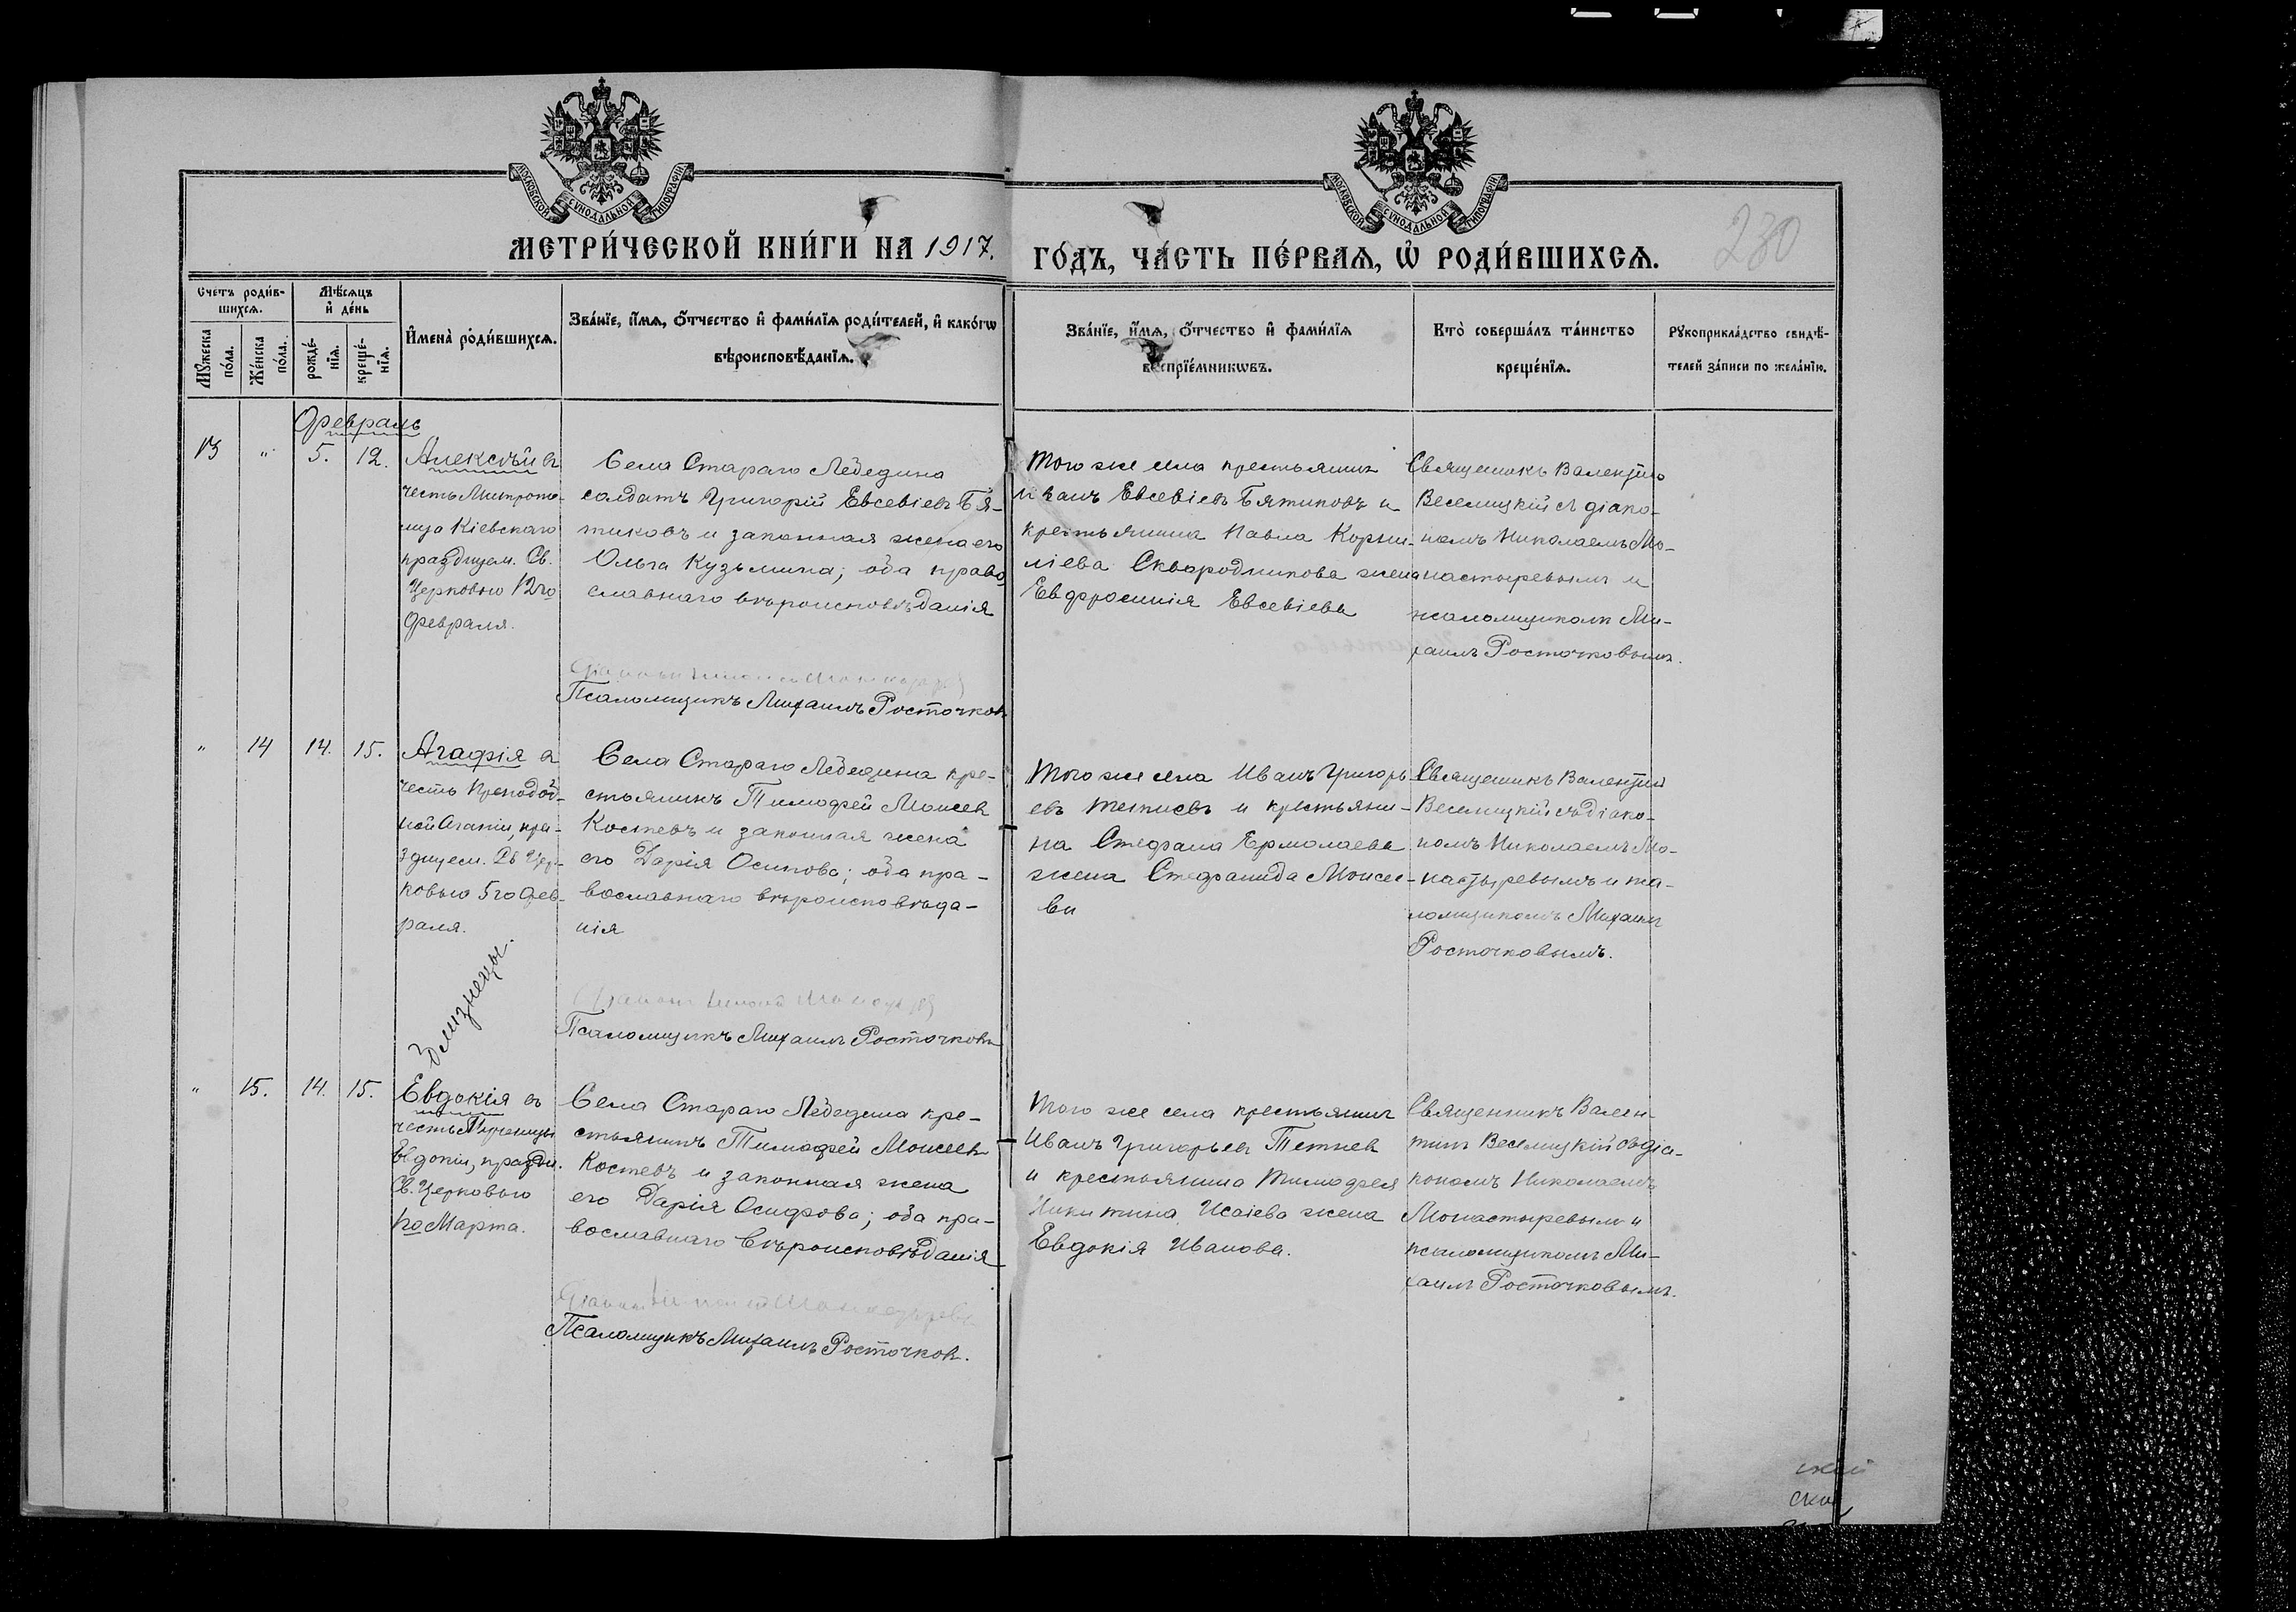 МОСКОВСКОЙ СѴНОДАЛЬНОЙ ТИПОГРАФІИ
МОСКОВСКОЙ СѴНОДАЛЬНОЙ ТИПОГРАФІИ
230
МЕТРИ́ЧЕСКОЙ КНИ́ГИ НА 1917.
ГО́ДЪ, ЧА́СТЬ ПЕ́РВАѦ, Ѡ҆ РОДИ́ВШИХСѦ.
Сче́тъ роди́в-
шихсѧ.
Мѣ́сѧцъ
и҆ де́нь
Мꙋ́жеска
по́ла.
Же́нска
по́ла.
рожде́-
нїѧ.
креще́-
нїѧ.
И҆мена̀ роди́вшихсѧ.
Зва́нїе, и҆́мѧ, ѻ҆́тчество и҆ фами́лїѧ роди́телей, и҆ како́гѡ
вѣроисповѣ́данїѧ.
Зва́нїе, и҆́мѧ, ѻ҆́тчество и҆ фами́лїѧ
воспрїе́мникѡвъ.
Кто̀ соверша́лъ та́инство
креще́нїѧ.
Рꙋкоприкла́дство свидѣ́-
телей за́писи по жела́нїю.
Февраль
13 " 5. 12.
Алексѣй въ
честь Митропо-
лита Кіевскаго
празднуем. Св.
Церковью 12го
Февраля.
Села Стараго Лебедина
солдатъ Григорій Евсевіевъ Бя-
тиковъ и законная жена его
Ольга Кузьмина; оба право
славнаго вѣроисповѣданія
Псаломщикъ Михаилъ Росточковъ
Того же села крестьянинъ
Иванъ Евсевіевъ Бятиковъ и
крестьянина Павла Корни-
ліева Сквородникова жена
Евфросинія Евсевіева
Священникъ Валентинъ
Веселицкій съ діако-
номъ Николаемъ Мо-
настыревымъ и
псаломщикомъ Ми-
хаилъ Росточковымъ.
" 14 14. 15.
Агафія въ
честь Преподоб-
ной Агапіи, пра-
зднуем. Св. Цер-
ковью 5го Фев-
раля.
Села Стараго Лебедина кре-
стьянинъ Тимофей Моисеевъ
Костевъ и законная жена
его Дарія Осипова; оба пра-
вославнаго вѣроисповѣда-
нія
Псаломщикъ Михаилъ Росточковъ
Того же села Иванъ Григорь
евъ Тетневъ и крестьяни-
на Стефана Ермолаева
жена Стефанида Моисее-
ва
Священникъ Валентинъ
Веселицкій съ діако-
номъ Николаемъ Мо-
настыревымъ и пса-
ломщикомъ Михаилъ
Росточковымъ.
близнецы.
" 15. 14. 15.
Евдокія въ
честь Мученицы
Евдокіи, праздн.
Св. Церковью
1го Марта.
Села Стараго Лебедина кре-
стьянинъ Тимофей Моисеевъ
Костевъ и законная жена
его Дарія Осифова; оба пра-
вославнаго вѣроисповѣданія
Псаломщикъ Михаилъ Росточковъ.
Того же села крестьянинъ
Иванъ Григорьевъ Тетневъ
и крестьянина Тимофея
Никитина Исаіева жена
Евдокія Иванова.
Священникъ Вален-
тинъ Веселицкій съ діа-
кономъ Николаемъ
Монастыревымъ и
псаломщикомъ Ми-
хаилъ Росточковымъ.